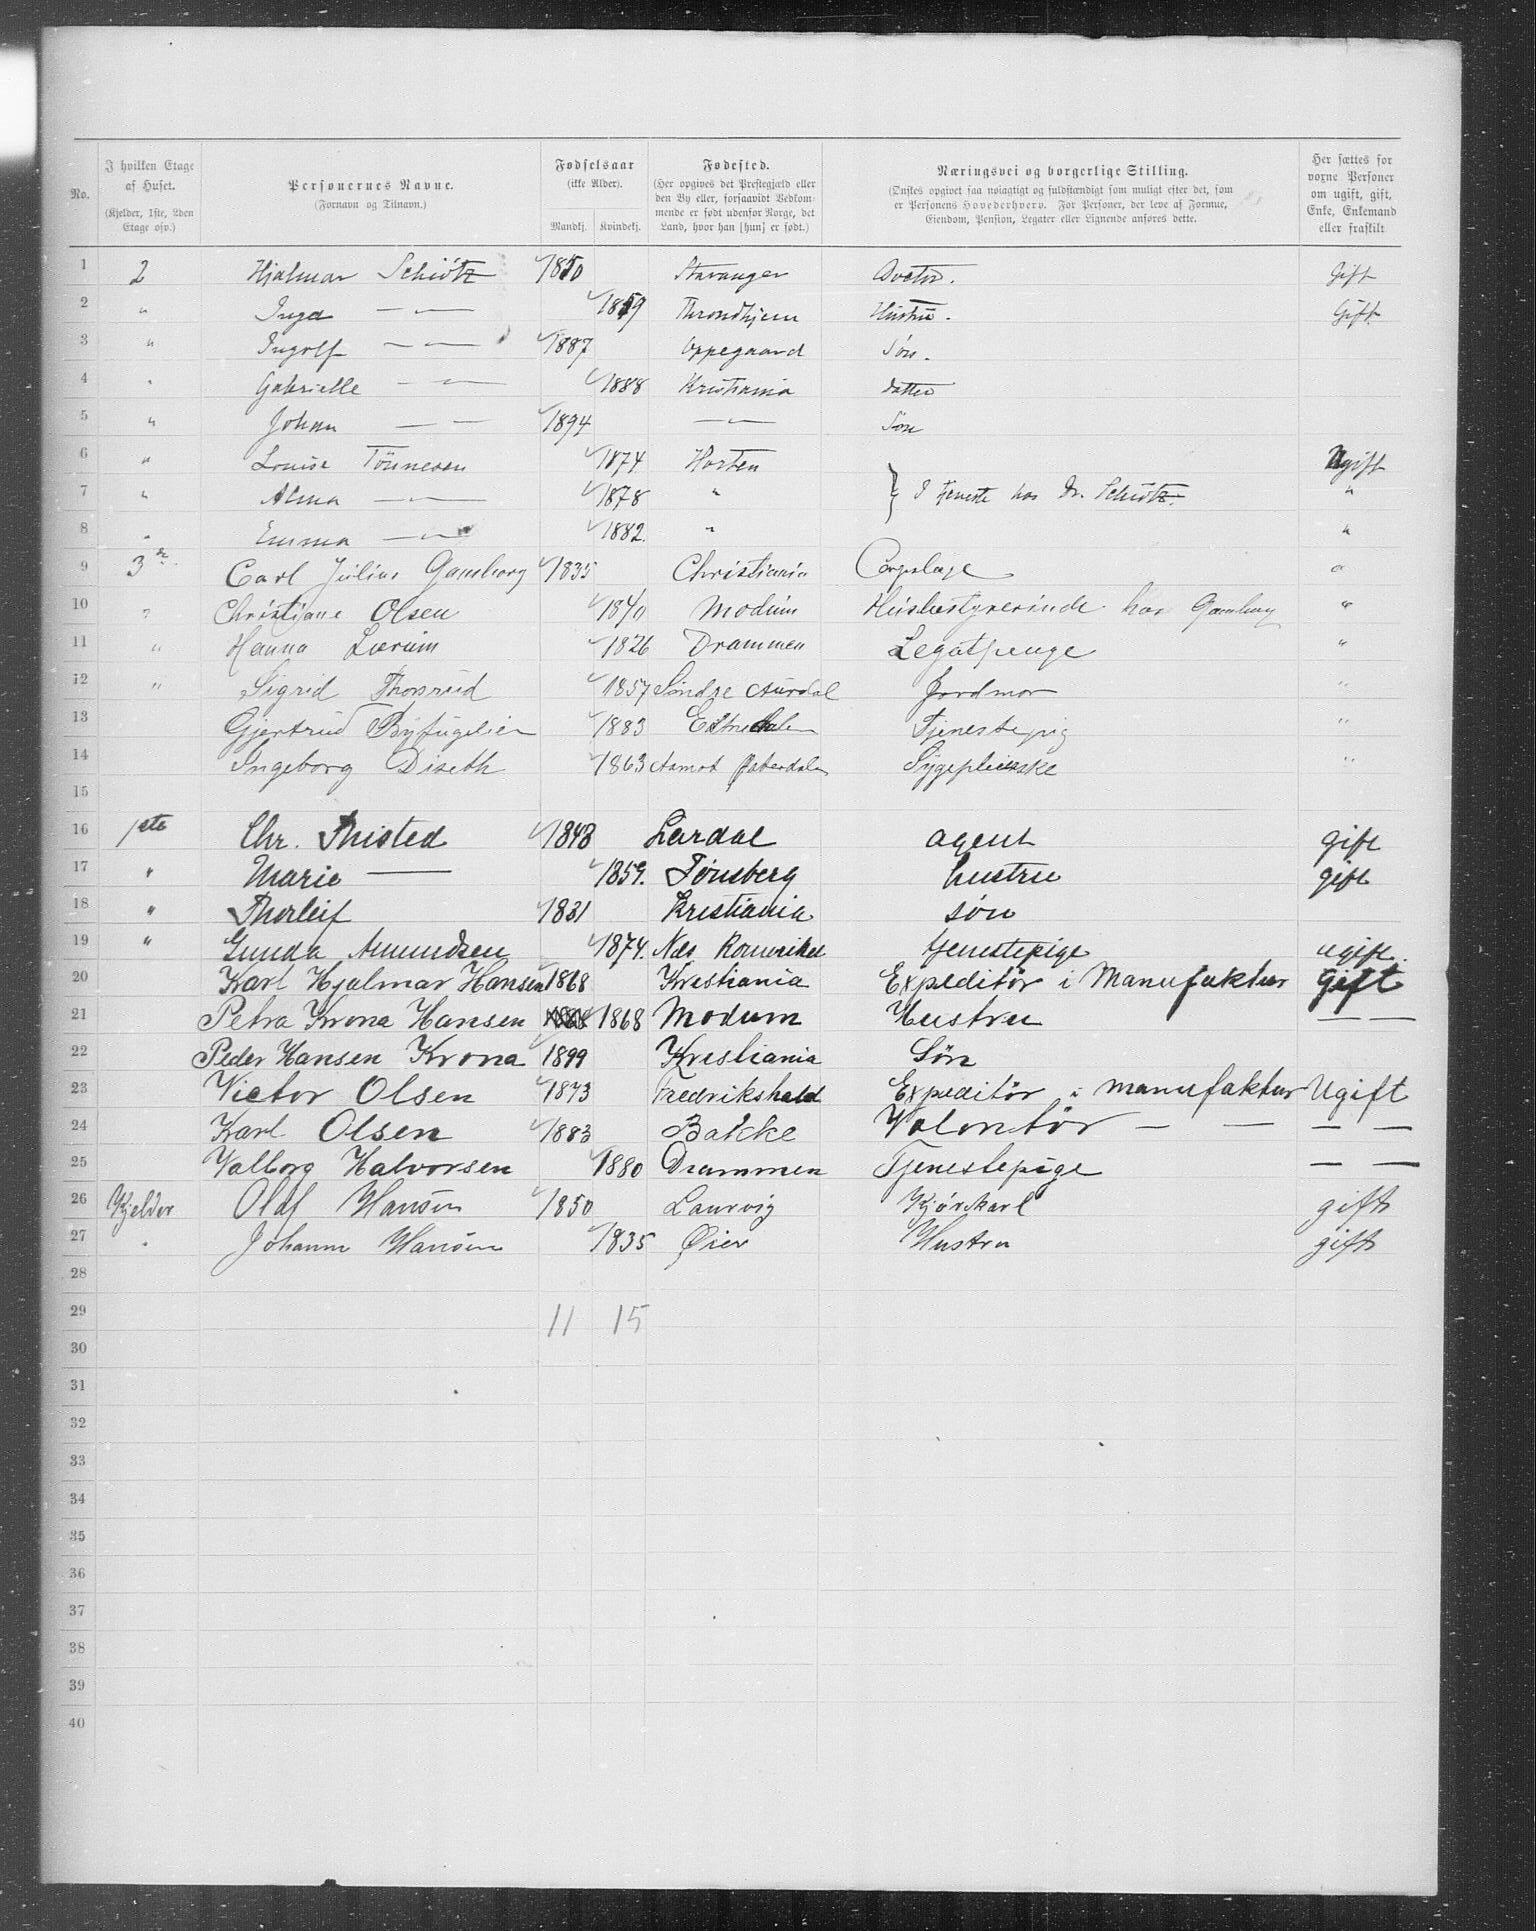 No.
I hvilken Etage af Huset.
(Kjelder, 1ste, 2den Etage osv.)
Personernes Navne.
(Fornavn og Tilnavn.)
Fødselsaar
(ikke Alder).
Mandkj. Kvindekj.
Fødested.
(Her opgives det Prestegjæld eller den By eller, forsaavidt Vedkommende er født udenfor Norge, det Land, hvor han [hun] er født.)
Næringsvei og borgerlige Stilling.
(Ønskes opgivet saa nøiagtigt og fuldstændigt som muligt efter det, som er Personens Hovederhverv. For Personer, der leve af Formue, Eiendom, Pension, Legater eller Lignende anføres dette.
Her sættes for voxne Personer om ugift, gift, Enke, Enkemand eller fraskilt
1 2 Hjalmar Schiøtz 1850 Stavanger Doctor. Gift
2 " Inga — " — 1859 Throndhjem Hustru. Gift
3 " Ingolf — " — 1887 Oppegaard Søn.
4 " Gabrielle — " — 1888 Kristiania datter
5 " Johan — — 1894 — " — Søn
6 " Louise Tönnesen 1874 Horten Ugift
7 " Alma — " — 1878 " } I tjeneste hos Dr. Schiøtz. "
8 " Emma — " — 1882. " "
9 3 Carl Julius Gamborg 1835 Christiania "
10 " Christiane Olsen 1840 Modum Husbestyrerinde hos Gamborg "
11 " Hanna Lærum 1826 Drammen Legatpenge "
12 " Sigrid Thorsrud 1857 Søndre Aurdal Jordmor "
13 Gjertrud Byfuglien 1883 Tjenestepig "
14 Ingeborg Diseth 1863 Aamot Østerdalen Sygepleierske "
15
16 1ste Chr. Thisted 1843 Lardal agent gift
17 " Marie — 1859. Tønsberg hustru gift
18 " Thorleif 1891 Kristiania søn
19 " Gunda Amundsen 1874. Nes Romerike tjenestepige ugift.
20 Karl Hjalmar Hansen 1868 Kristiania Expeditör i Manufaktur Gift
21 Petra Krona Hansen 1868 Modum Hustru — —
22 Peder Hansen Krona 1899 Kristiania Søn
23 Victor Olsen 1873 Fredrikshald Expeditör i manufaktur Ugift
24 Karl Olsen 1883 Bakke Volontör — — — —
25 Valborg Halvorsen 1880 Drammen Tjenestepige — —
26 Kjelder Olaf Hansen 1850 Laurvig Kjørekarl gift
27 " Johanne Hansen 1835 Øier Hustru gift
28
29 11 15
30
31
32
33
34
35
36
37
38
39
40